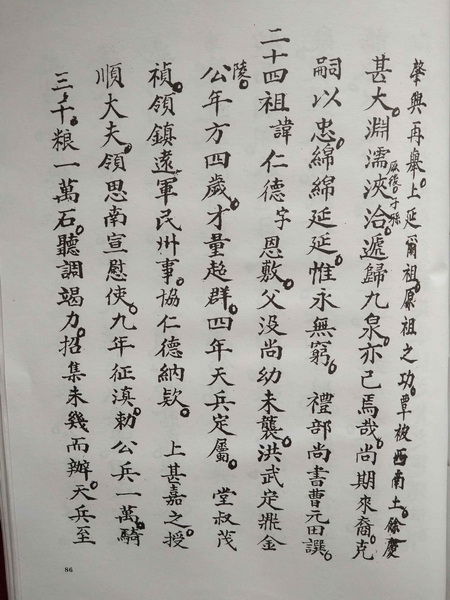 肇興再舉。上延爾祖。原祖之功。覃被西南土。餘慶
甚大。淵濡浹洽。厥後子孫遞歸九泉。亦已焉哉。尚期來裔。克
嗣以忠。綿綿延延。惟永無窮。 禮部尚書曹元田譔。
二十四祖 諱仁德字恩敷。父没尚幼未襲。洪武定鼎金
陵。公年方四歲。才量超群。四年天兵定屬。 堂叔茂
禎。領鎮遠軍民州事。協仁德納欵。 上甚嘉之。授
順大夫。領思南宣慰使。九年征滇。勅公兵一萬。騎
三千。粮一萬石。聽調竭力。招集未幾而辦。天兵至
86